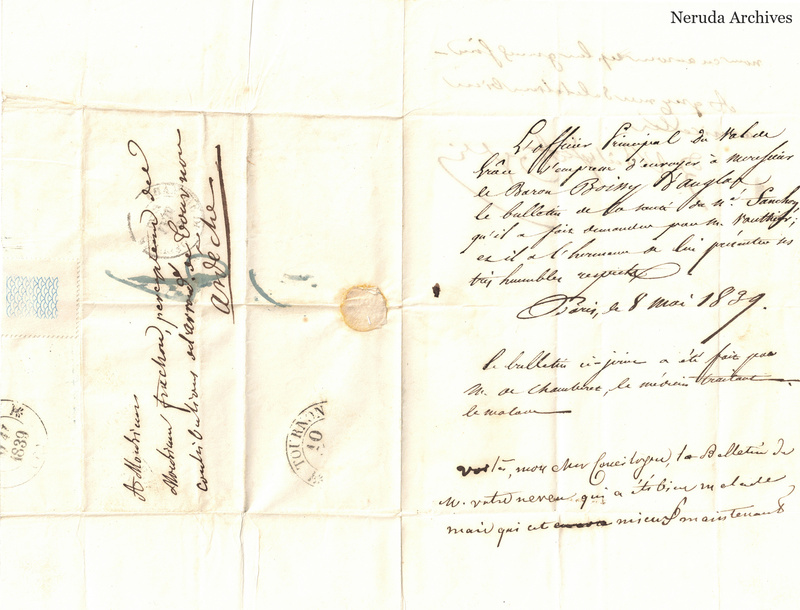 Neruda Archives
L'officier Principal du Val de
Grâce s'empresse d'envoyer à Monsieur
le Baron Boissy D'anglas
le bulletin de la santé du Sr. Franchon,
qu'il a fait demander par M. Vauthier;
et il a l'honneur de lui présenter ses
très humbles respects
Paris, le 8 mai 1839.
le bulletin ci-joint a été fait par
M. de Chamberet, le médecin traitant
le malade
voilà, mon cher Concitoyen, le Bulletin de
M. votre neveu qui a été bien malade,
mais qui est mieux maintenant
A Monsieur
Monsieur frachon, percepteur des
contributions et arrond. de Tournon
ardèche
TOURNON
10
1839